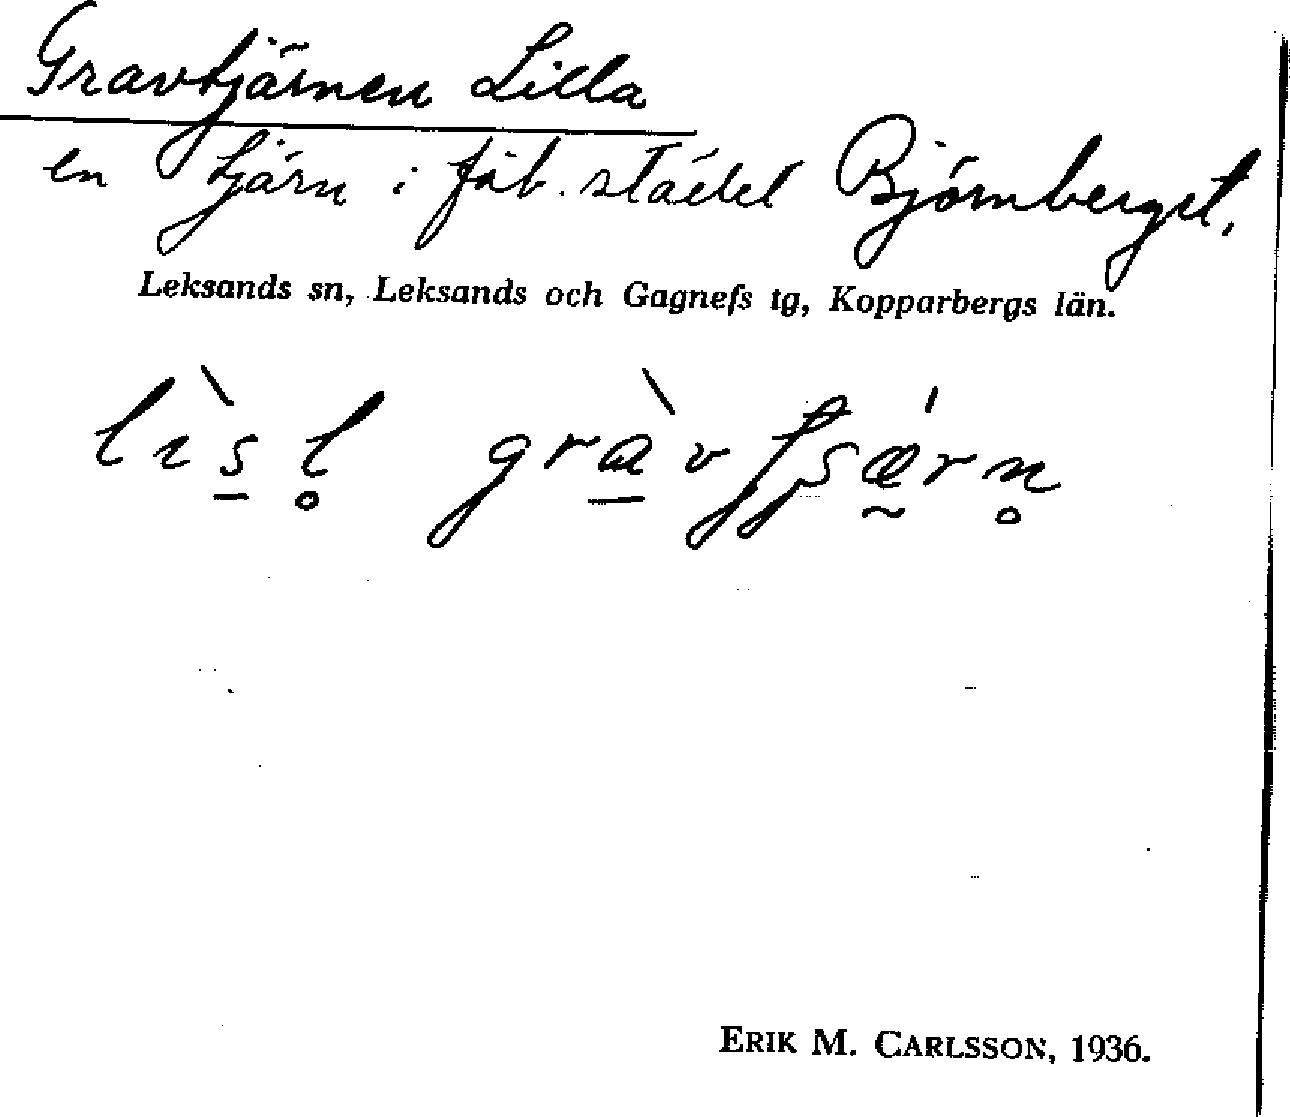 Gravtjärnen Lilla
en tjärn i fäb. stället Björnberget.
Leksands sn, Leksands och Gagnefs tg, Kopparbergs län.
ERIK M. CARLSSON, 1936.